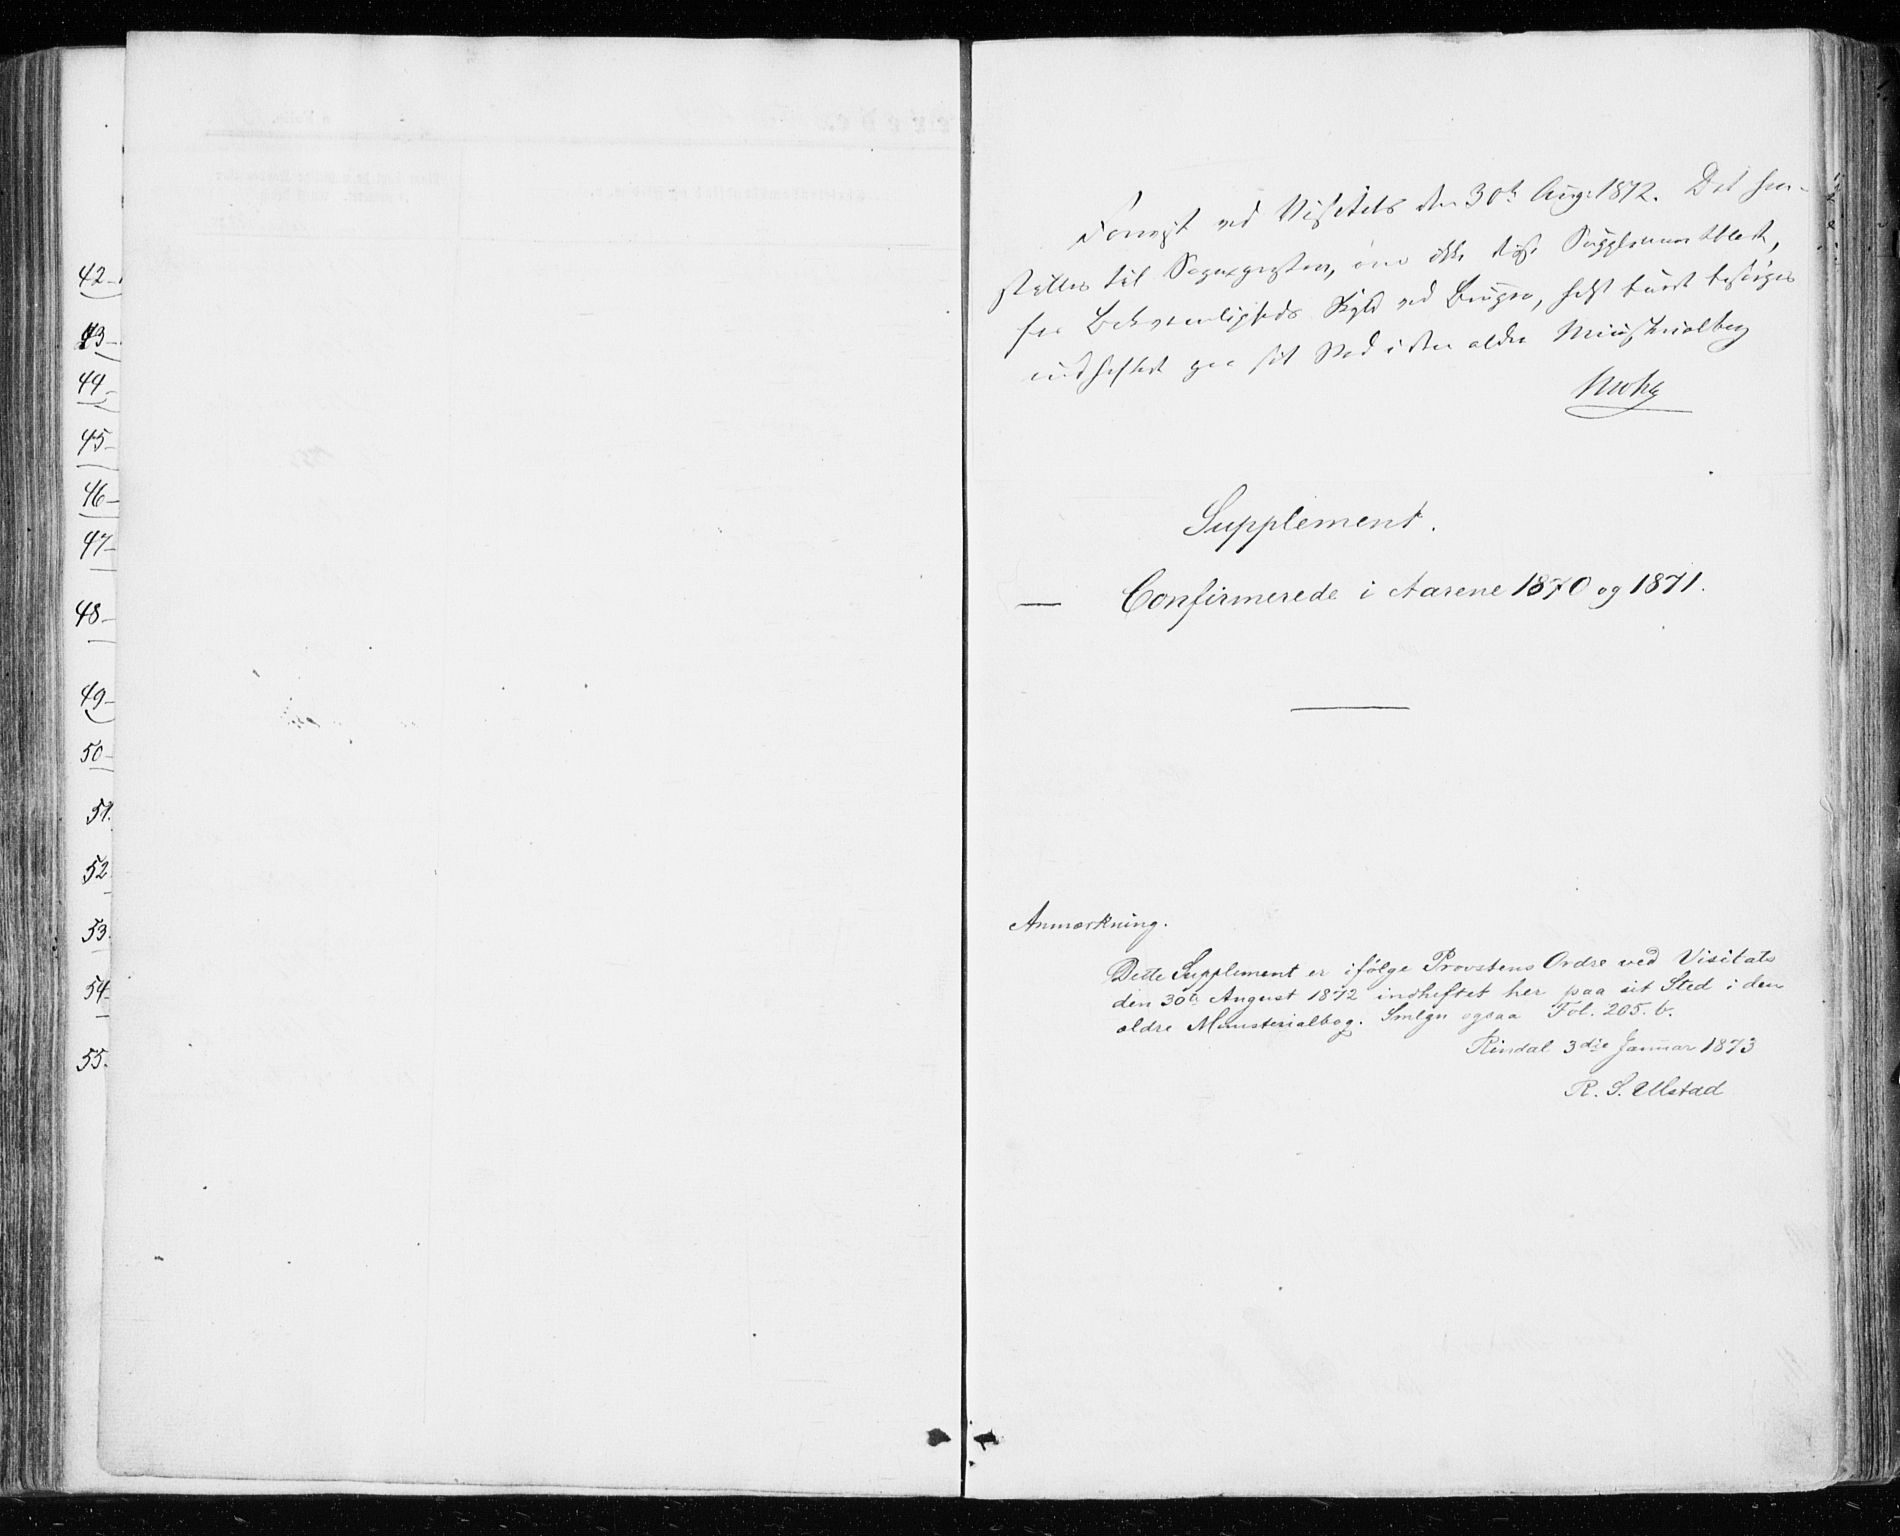 42-
43-
44-
45-
46-
47-
48-
49-
50-
51.
52
53.
54-
55.
Forevist ved Visitats den 30te Aug. 1872. Det hen-
stilles til Sognepresten, om ikke disse Supplementblade,
for Bekvemmeligheds Skyld ved Brugen, helst burde besørges
indheftet paa sit Sted i den ældre Ministerialbog
Supplement.
— Confirmerede i Aarene 1870 og 1871.
Anmærkning.
Dette Supplement er ifølge Provstens Ordre ved Visitats
den 30te August 1872 indheftet her paa sit Sted i den
ældre Ministerialbog. Smlgn ogsaa Fol. 205. b.
Rindal 3die Januar 1873
R. S. Ulstad